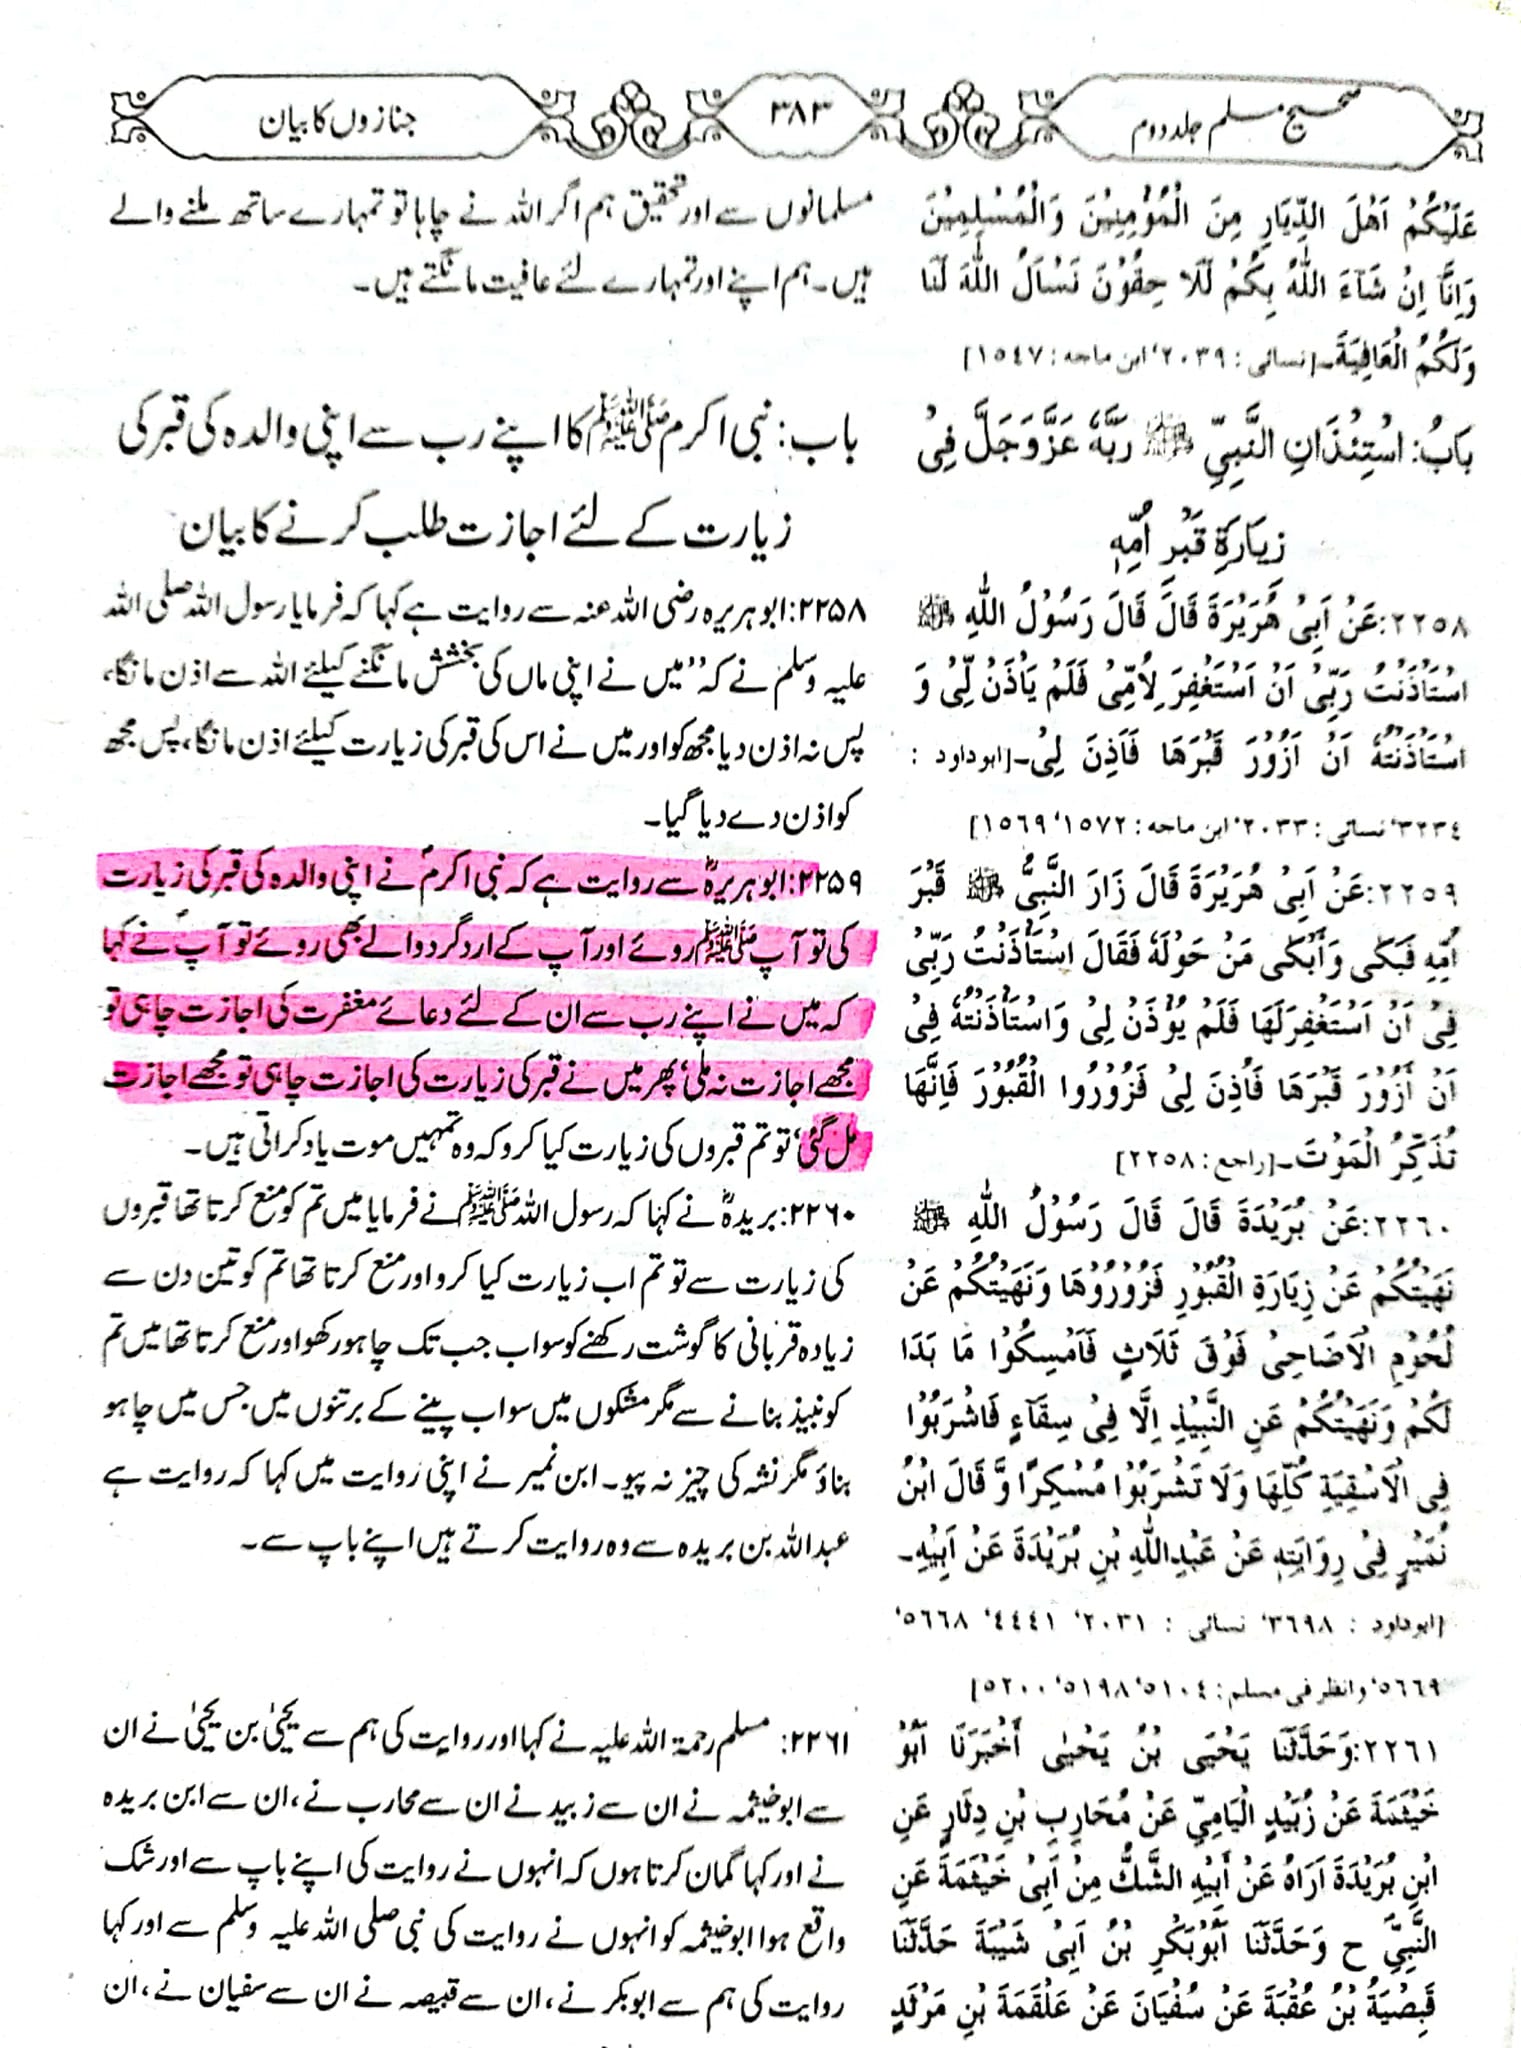 صحیح مسلم جلد دوم
۳۸۳
جنازوں کا بیان
عَلَيْكُمْ اَهْلَ الدِّيَارِ مِنَ الْمُؤْمِنِيْنَ وَالْمُسْلِمِيْنَ
وَاِنَّا اِنْ شَآءَ اللّٰهُ بِكُمْ لَلَا حِقُوْنَ نَسْاَلُ اللّٰهَ لَنَا
وَلَكُمُ الْعَافِيَةَ۔[نسائی : ۲۰۳۹، ابن ماجه : ۱۵۴۷]
بَابُ: اسْتِئْذَانِ النَّبِيِّ ﷺ رَبَّهٗ عَزَّوَجَلَّ فِىْ
زِيَارَةِ قَبْرِ اُمِّهٖ
۲۲۵۸:عَنْ اَبِىْ هُرَيْرَةَ قَالَ قَالَ رَسُوْلُ اللّٰهِ ﷺ
اسْتَاْذَنْتُ رَبِّىْ اَنْ اَسْتَغْفِرَ لِاُمِّىْ فَلَمْ يَاْذَنْ لِّىْ وَ
اسْتَاْذَنْتُهٗ اَنْ اَزُوْرَ قَبْرَهَا فَاَذِنَ لِىْ۔[ابوداود :
۳۲۳۴، نسائی : ۲۰۳۳، ابن ماجه : ۱۵۷۲، ۱۵۶۹]
۲۲۵۹:عَنْ اَبِىْ هُرَيْرَةَ قَالَ زَارَ النَّبِىُّ ﷺ قَبْرَ
اُمِّهٖ فَبَكٰى وَاَبْكٰى مَنْ حَوْلَهٗ فَقَالَ اسْتَاْذَنْتُ رَبِّىْ
فِىْ اَنْ اَسْتَغْفِرَلَهَا فَلَمْ يُؤْذَنْ لِىْ وَاسْتَاْذَنْتُهٗ فِىْ
اَنْ اَزُوْرَ قَبْرَهَا فَاُذِنَ لِىْ فَزُوْرُوا الْقُبُوْرَ فَاِنَّهَا
تُذَكِّرُ الْمَوْتَ۔[راجع : ۲۲۵۸]
۲۲۶۰:عَنْ بُرَيْدَةَ قَالَ قَالَ رَسُوْلُ اللّٰهِ ﷺ
نَهَيْتُكُمْ عَنْ زِيَارَةِ الْقُبُوْرِ فَزُوْرُوْهَا وَنَهَيْتُكُمْ عَنْ
لُحُوْمِ الْاَضَاحِىْ فَوْقَ ثَلَاثٍ فَاَمْسِكُوْا مَا بَدَا
لَكُمْ وَنَهَيْتُكُمْ عَنِ النَّبِيْذِ اِلَّا فِىْ سِقَآءٍ فَاشْرَبُوْا
فِى الْاَسْقِيَةِ كُلِّهَا وَلَا تَشْرَبُوْا مُسْكِرًا وَّ قَالَ ابْنُ
نُمَيْرٍ فِىْ رِوَايَتِهٖ عَنْ عَبْدِاللّٰهِ بْنِ بُرَيْدَةَ عَنْ اَبِيْهِ۔
[ابوداود : ۳۶۹۸، نسائی : ۲۰۳۱، ۴۴۴۱، ۵۶۶۸،
۵۶۶۹، وانظر فی مسلم : ۵۱۰۴، ۵۱۹۸، ۵۲۰۰]
۲۲۶۱:وَحَدَّثَنَا يَحْيَى بْنُ يَحْيٰى أَخْبَرَنَا اَبُوْ
خَيْثَمَةَ عَنْ زُبَيْدٍ الْيَامِيِّ عَنْ مُحَارِبِ بْنِ دِثَارٍ عَنِ
ابْنِ بُرَيْدَةَ اَرَاهُ عَنْ أَبِيْهِ الشَّكُّ مِنْ اَبِىْ خَيْثَمَةَ عَنِ
النَّبِيِّ ح وَحَدَّثَنَا اَبُوْبَكْرِ بْنُ اَبِىْ شَيْبَةَ حَدَّثَنَا
قَبِصْيَةُ بْنُ عُقْبَةَ عَنْ سُفْيَانَ عَنْ عَلْقَمَةَ بْنِ مَرْثَدٍ
مسلمانوں سے اور تحقیق ہم اگر اللہ نے چاہا تو تمہارے ساتھ ملنے والے
ہیں۔ ہم اپنے اور تمہارے لئے عافیت مانگتے ہیں۔
باب: نبی اکرم ﷺ کا اپنے رب سے اپنی والدہ کی قبر کی
زیارت کے لئے اجازت طلب کرنے کا بیان
۲۲۵۸: ابو ہریرہ رضی اللہ عنہ سے روایت ہے کہا کہ فرمایا رسول اللہ صلی اللہ
علیہ وسلم نے کہ ”میں نے اپنی ماں کی بخشش مانگنے کیلئے اللہ سے اذن مانگا،
پس نہ اذن دیا مجھ کو اور میں نے اس کی قبر کی زیارت کیلئے اذن مانگا، پس مجھ
کو اذن دے دیا گیا۔
۲۲۵۹: ابو ہریرہؓ سے روایت ہے کہ نبی اکرمؐ نے اپنی والدہ کی قبر کی زیارت
کی تو آپ ﷺ روئے اور آپ کے اردگرد والے بھی روئے تو آپؐ نے کہا
کہ میں نے اپنے رب سے ان کے لئے دعائے مغفرت کی اجازت چاہی تو
مجھے اجازت نہ ملی، پھر میں نے قبر کی زیارت کی اجازت چاہی تو مجھے اجازت
مل گئی، تو تم قبروں کی زیارت کیا کرو کہ وہ تمہیں موت یاد کراتی ہیں۔
۲۲۶۰: بریدہؓ نے کہا کہ رسول اللہ ﷺ نے فرمایا میں تم کو منع کرتا تھا قبروں
کی زیارت سے تو تم اب زیارت کیا کرو اور منع کرتا تھا تم کو تین دن سے
زیادہ قربانی کا گوشت رکھنے کو سو اب جب تک چاہو رکھو اور منع کرتا تھا میں تم
کو نبیذ بنانے سے مگر مشکوں میں سو اب پینے کے برتنوں میں جس میں چاہو
بناؤ مگر نشہ کی چیز نہ پیو۔ ابن نمیر نے اپنی روایت میں کہا کہ روایت ہے
عبداللہ بن بریدہ سے وہ روایت کرتے ہیں اپنے باپ سے۔
۲۲۶۱: مسلم رحمۃ اللہ علیہ نے کہا اور روایت کی ہم سے یحییٰ بن یحییٰ نے ان
سے ابو خیثمہ نے ان سے زبید نے ان سے محارب نے، ان سے ابن بریدہ
نے اور کہا گمان کرتا ہوں کہ انہوں نے روایت کی اپنے باپ سے اور شک
واقع ہوا ابو خیثمہ کو انہوں نے روایت کی نبی صلی اللہ علیہ وسلم سے اور کہا
روایت کی ہم سے ابوبکر نے، ان سے قبیصہ نے ان سے سفیان نے، ان